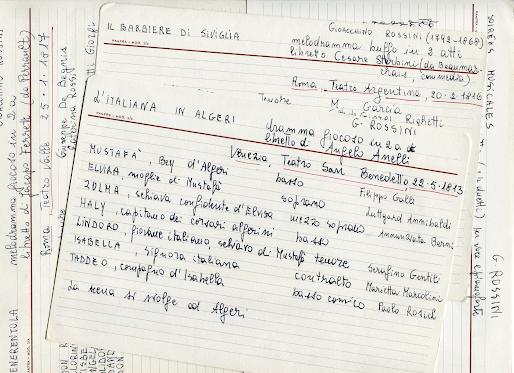 IL BARBIERE DI SIVIGLIA
Gioacchino ROSSINI (1792-1868)
melodramma buffo in 2 atti
libretto Cesare Sterbini (da Beaumar-
chais, commedia)
Roma, Teatro Argentina, 20-2-1816
Tenore
M. Garcia
Righetti
L'ITALIANA IN ALGERI
G. ROSSINI
dramma giocoso in 2 a
libretto di Angelo Anelli
Venezia, Teatro San Benedetto 22-5-1813
MUSTAFÀ, Bey d'Algeri basso Filippo Galli
ELVIRA, moglie di Mustafà soprano Luttgard Annibaldi
ZULMA, schiava confidente d'Elvira mezzo soprano Annunziata Berni
HALY, capitano dei corsari algerini basso
LINDORO, giovane italiano, schiavo di Mustafà tenore Serafino Gentili
ISABELLA, signora italiana contralto Marietta Marcolini
TADDEO, compagno d'Isabella basso comico Paolo Rosich
La scena si svolge ad Algeri
CENERENTOLA
melodramma giocoso in 2 a
libretto di Jacopo Ferretti (da Perrault)
Roma Teatro Valle 25-1-1817
Giuseppe De Begnis
Giorgi
SOIRÉES MUSICALES
G ROSSINI